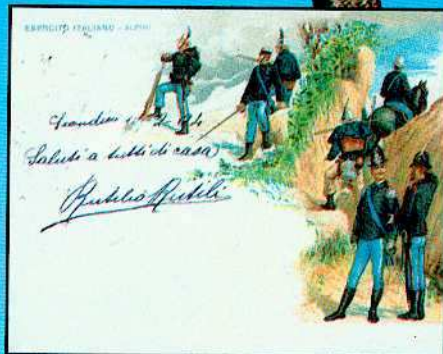 ESERCITO ITALIANO - ALPINI
Saluti a tutti di casa
Rutilio Rutili